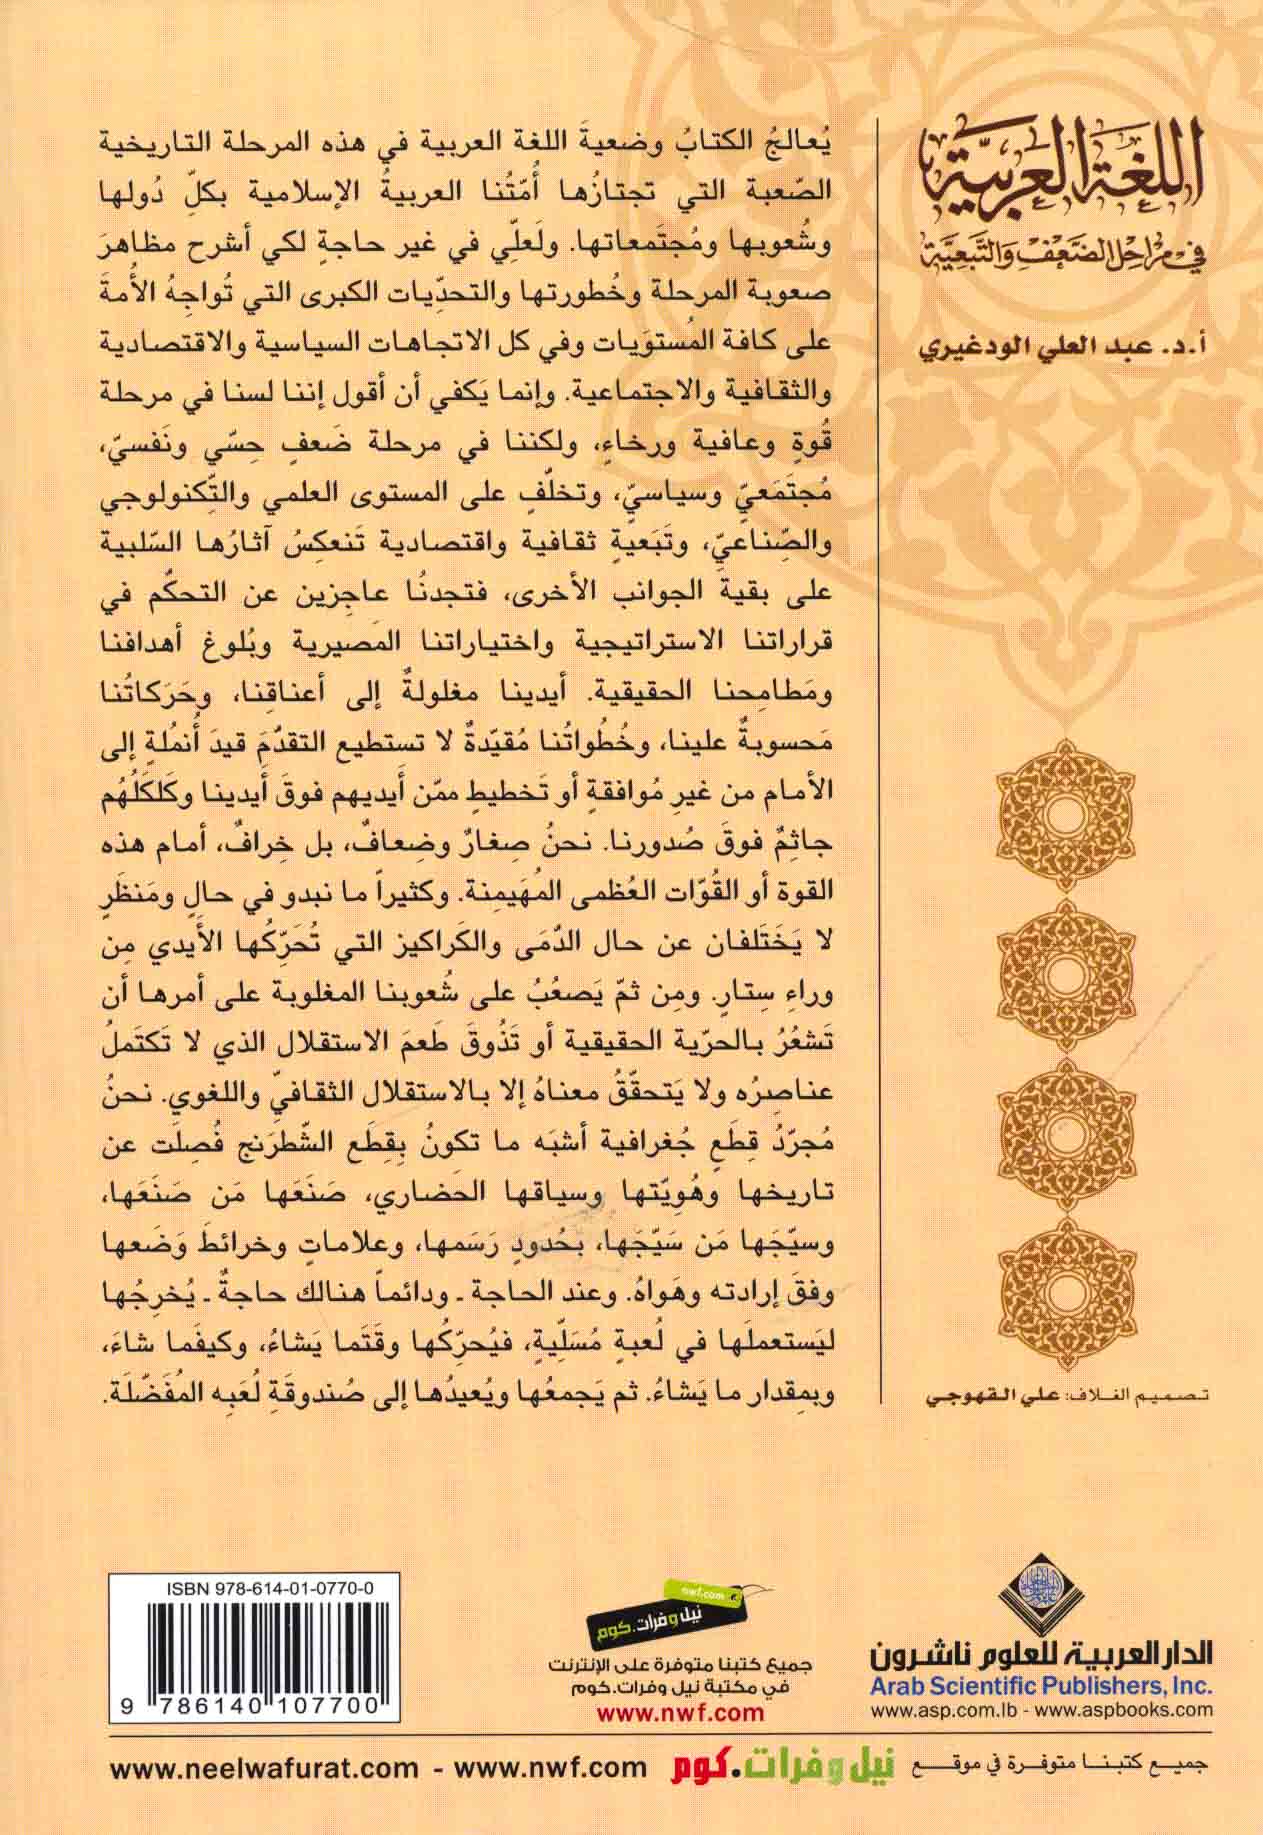 اللغة العربية
في مراحل الضعف والتبعية
أ.د. عبد العلي الودغيري
يُعالجُ الكتابُ وضعيةَ اللغة العربية في هذه المرحلة التاريخية
الصّعبة التي تجتازُها أُمّتُنا العربيةُ الإسلامية بكلِّ دُولها
وشُعوبها ومُجتَمعاتها. ولَعلّي في غير حاجةٍ لكي أشرح مظاهرَ
صعوبة المرحلة وخُطورتها والتحدّيات الكبرى التي تُواجِهُ الأُمةَ
على كافة المُستوَيات وفي كل الاتجاهات السياسية والاقتصادية
والثقافية والاجتماعية. وإنما يَكفي أن أقول إننا لسنا في مرحلة
قُوةٍ وعافية ورخاءٍ، ولكننا في مرحلة ضَعفٍ حِسّي ونَفسيّ،
مُجتَمَعيّ وسياسيّ، وتخلّفٍ على المستوى العلمي والتِّكنولوجي
والصِّناعيّ، وتَبَعيةٍ ثقافية واقتصادية تَنعكِسُ آثارُها السّلبية
على بقية الجوانب الأخرى، فتجدنُا عاجِزين عن التحكّم في
قراراتنا الاستراتيجية واختياراتنا المَصيرية وبُلوغ أهدافنا
ومَطامِحنا الحقيقية. أيدينا مغلولةٌ إلى أعناقِنا، وحَرَكاتُنا
مَحسوبةٌ علينا، وخُطُواتُنا مُقيّدةٌ لا تستطيع التقدّمَ قيدَ أُنمُلةٍ إلى
الأمام من غيرِ مُوافقةٍ أو تَخطيطٍ ممّن أيديهم فوقَ أيدينا وكَلكَلُهُم
جاثِمٌ فوقَ صُدورنا. نحنُ صِغارٌ وضِعافٌ، بل خِرافٌ، أمام هذه
القوة أو القُوّات العُظمى المُهَيمِنة. وكثيراً ما نبدو في حالٍ ومَنظَرٍ
لا يَختَلفان عن حال الدّمَى والكَراكيز التي تُحَرّكُها الأيدي مِن
وراءِ سِتارٍ. ومِن ثمّ يَصعُبُ على شُعوبنا المغلوبة على أمرها أن
تَشعُرُ بالحرّية الحقيقية أو تَذُوقَ طَعمَ الاستقلال الذي لا تَكتَملُ
عناصِرُه ولا يَتحقّقُ معناهُ إلا بالاستقلال الثقافيّ واللغوي. نحنُ
مُجرّدُ قِطَعٍ جُغرافية أشبَه ما تكونُ بِقِطَع الشّطرَنج فُصِلَت عن
تاريخها وهُويّتها وسياقها الحَضاري، صَنَعَها مَن صَنَعَها،
وسيّجَها مَن سَيّجَها، بحُدودٍ رَسَمها، وعلاماتٍ وخرائطَ وَضَعها
وفقَ إرادته وهَواهُ. وعند الحاجة ـ ودائماً هنالك حاجةٌ ـ يُخرِجُها
ليَستعملَها في لُعبةٍ مُسَلّيةٍ، فيُحرّكُها وقَتَما يَشاءُ، وكيفَما شاءَ،
وبمِقدار ما يَشاءُ. ثم يَجمعُها ويُعيدُها إلى صُندوقَةِ لُعَبِه المُفَضّلَة.
تصميم الغلاف: علي القهوجي
ISBN 978-614-01-0770-0
9 786140 107700
nwf.com
نيل وفرات.كوم
جميع كتبنا متوفرة على الإنترنت
في مكتبة نيل وفرات.كوم
www.nwf.com
الدار العربية للعلوم ناشرون
Arab Scientific Publishers, Inc.
www.asp.com.lb - www.aspbooks.com
جميع كتبنا متوفرة في موقع نيل وفرات.كوم www.neelwafurat.com - www.nwf.com